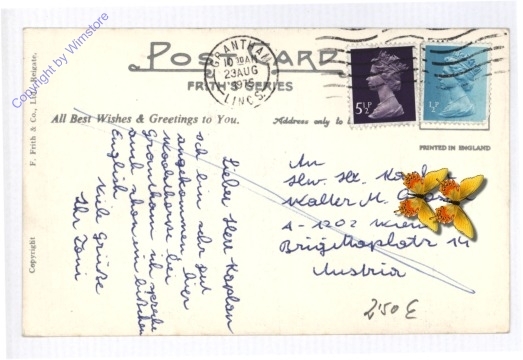 Copyright by Wimstore
POST CARD
FRITH'S SERIES
GRANTHAM
10 30 AM
23 AUG
1975
LINCS
5½P
½P
All Best Wishes & Greetings to You.
Address only to
PRINTED IN ENGLAND
F. Frith & Co., Ltd., Reigate.
Copyright
Lieber Herr Kaplan
ich bin sehr gut
angekommen. Hier
bei
Grantham ich spreche
auch schon ein bißchen
Englisch.
Viele Grüße
Ihr Toni
An
Hw. Hr. Kapl
Walter M.
A-1202 Wien
Brigittaplatz 14
Austria
2.50 €